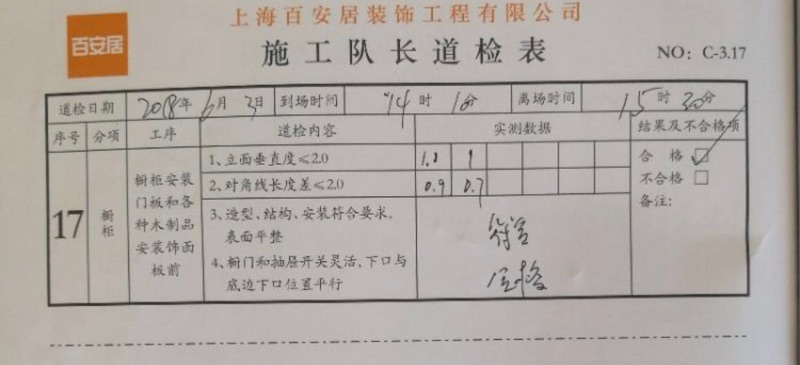 上海百安居装饰工程有限公司
百安居
施工队长道检表
NO：C-3.17
道检日期 2018年6月3日 到场时间 14时10分 离场时间 15时30分
序号 分项 工序 道检内容 实测数据 结果及不合格项
17 橱柜 橱柜安装门板和各种木制品安装饰面板前
1、立面垂直度≤2.0 1.0 1
2、对角线长度差≤2.0 0.9 0.7
3、造型、结构、安装符合要求，
表面平整
符合
4、橱门和抽屉开关灵活，下口与
底边下口位置平行
合格
合格 ☑
不合格 □
备注：